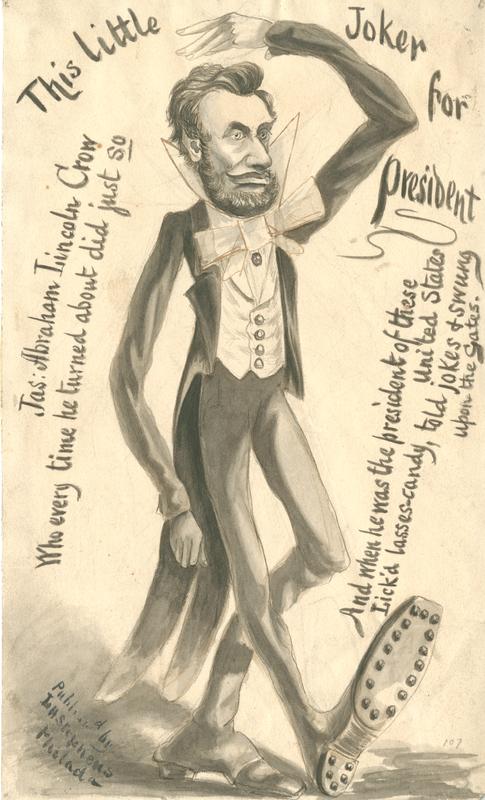 This little Joker for President
Jas: Abraham Lincoln Crow
Who every time he turned about did just so
And when he was the president of these United States
Lick'd lasses-candy, told Jokes & swung upon the gates.
Published by
Philada
107